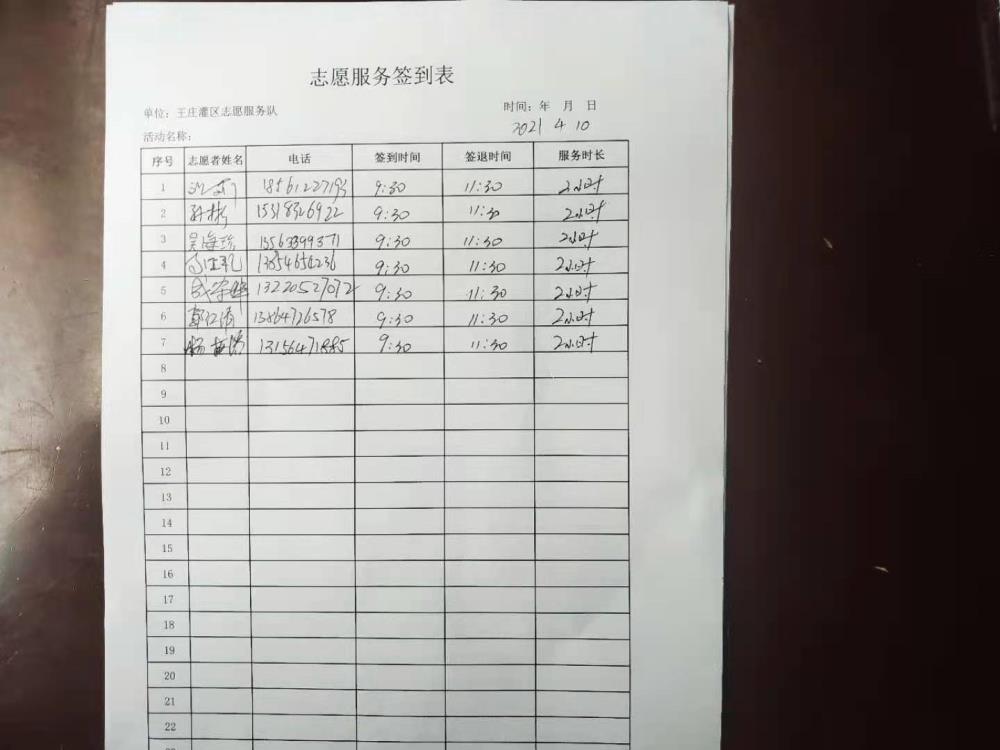 志愿服务签到表
单位：王庄灌区志愿服务队 时间：年 月 日
2021 4 10
活动名称：
序号 志愿者姓名 电话 签到时间 签退时间 服务时长
1 9:30 11:30 2小时
2 孙彬 15318326922 9:30 11:30 2小时
3 吴海珍 13563399371 9:30 11:30 2小时
4 13854654236 9:30 11:30 2小时
5 13220527072 9:30 11:30 2小时
6 13864726578 9:30 11:30 2小时
7 13156471885 9:30 11:30 2小时
8
9
10
11
12
13
14
15
16
17
18
19
20
21
22